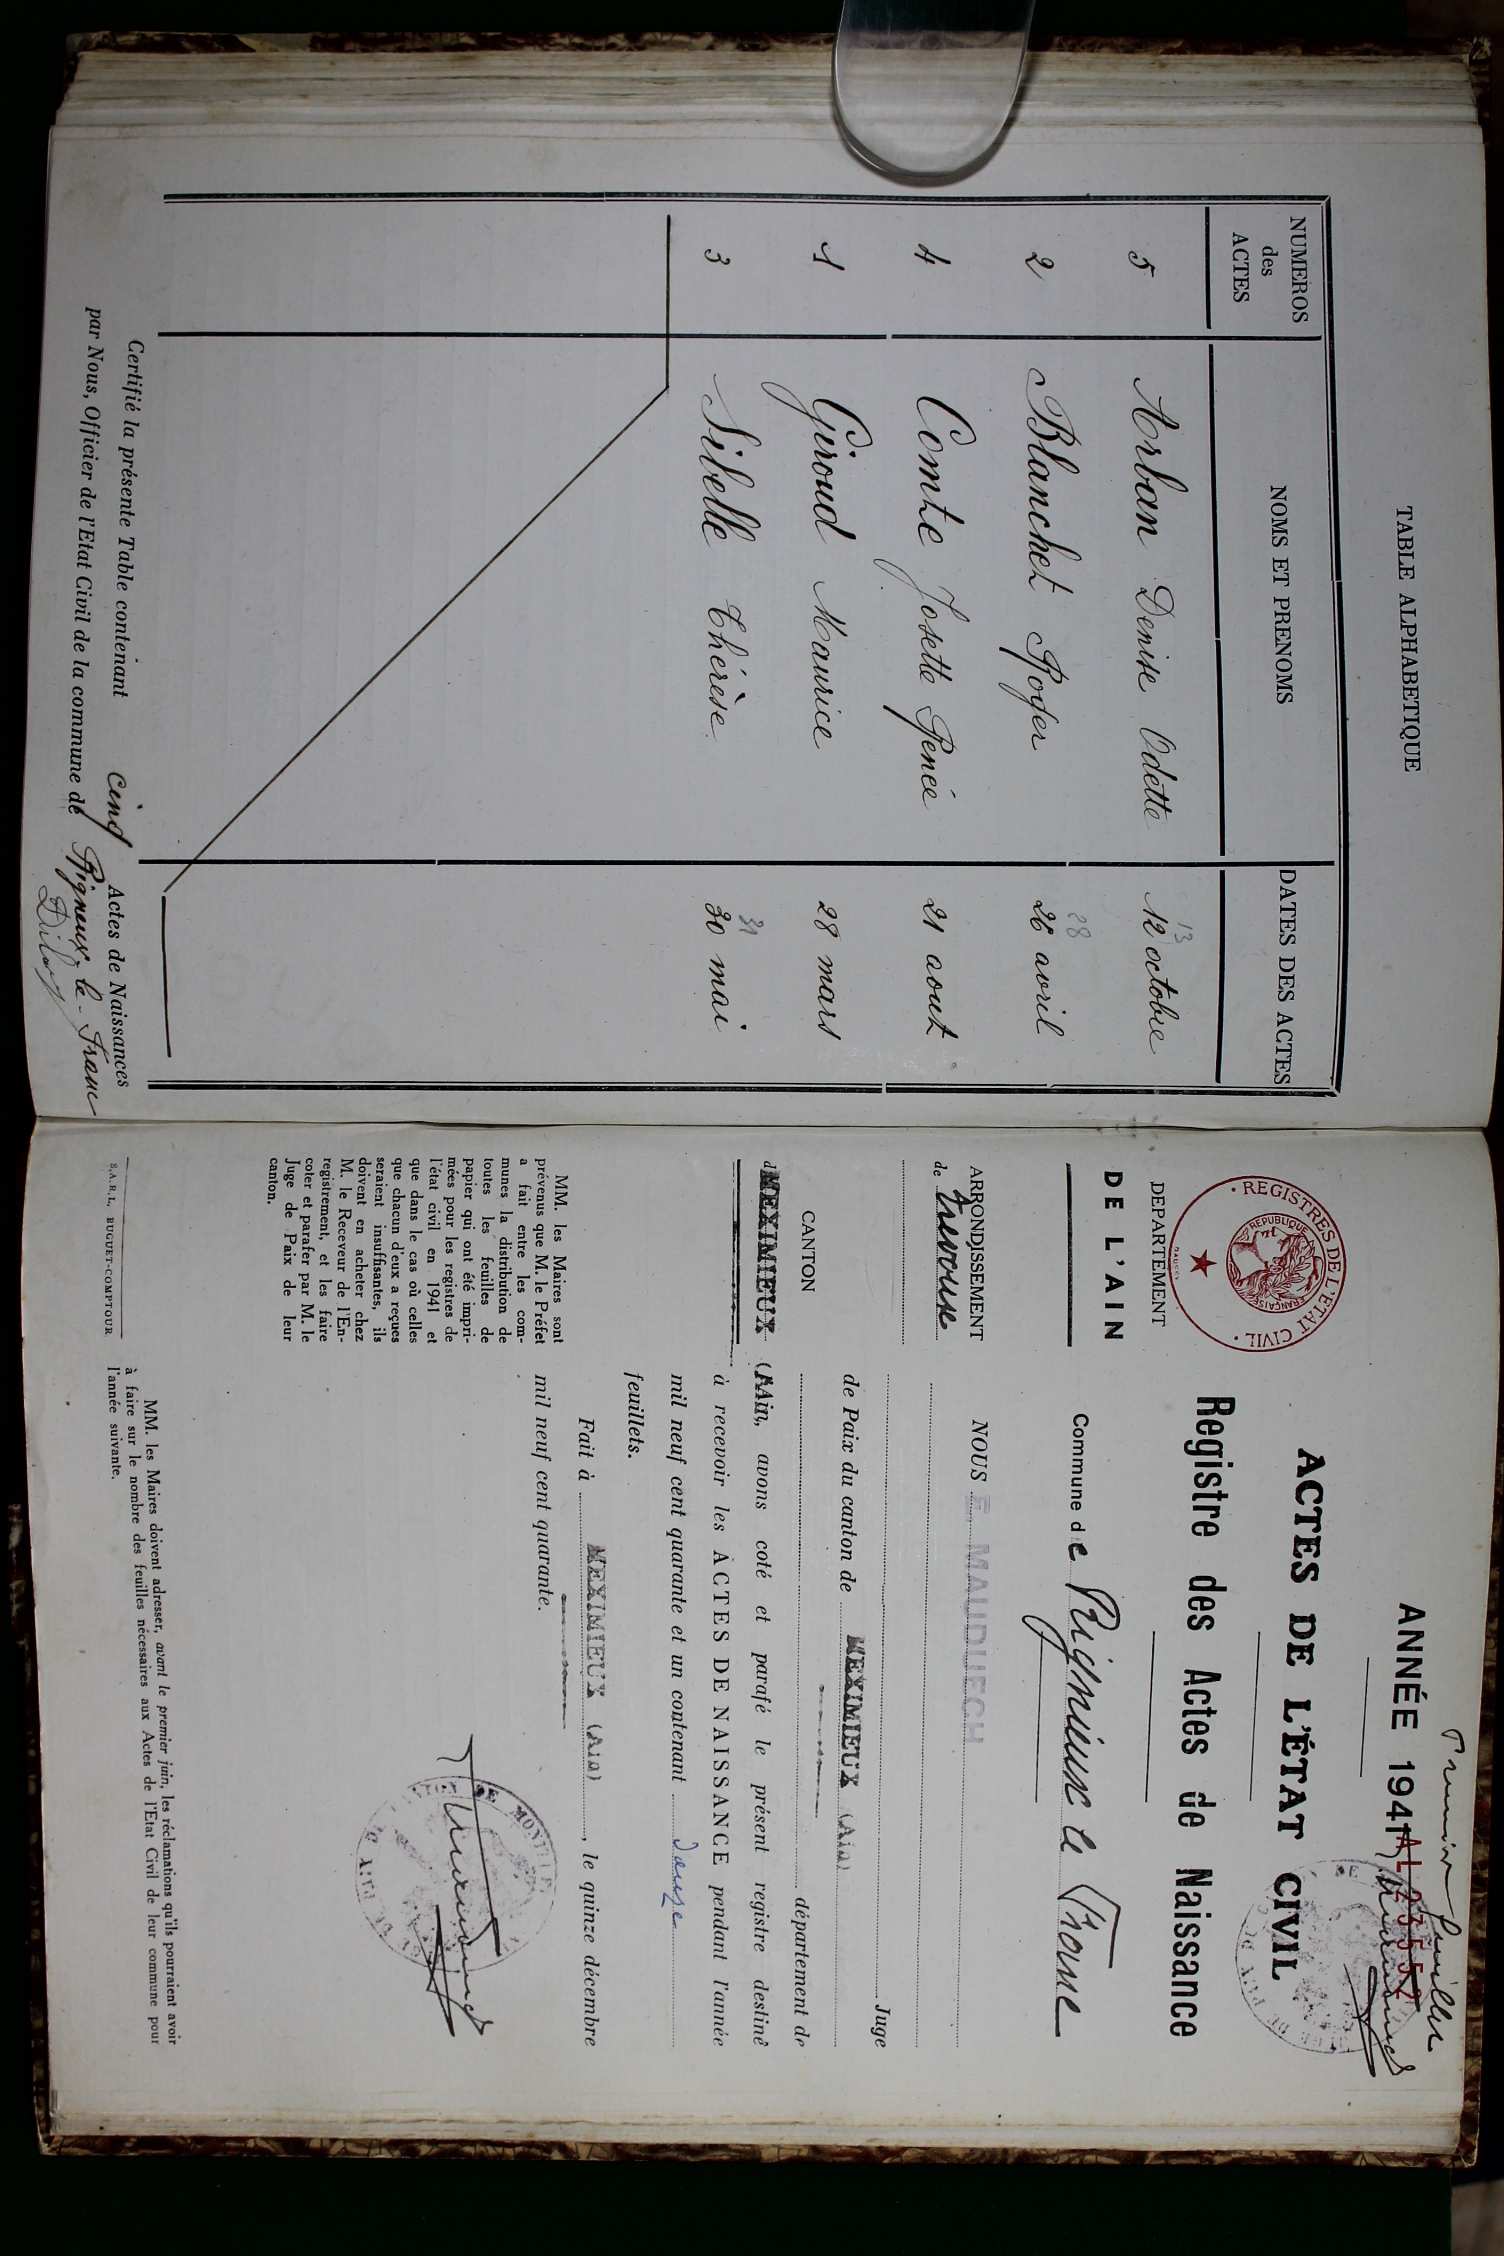 TABLE ALPHABETIQUE
NUMEROS des ACTES
NOMS ET PRENOMS
DATES DES ACTES
5 Arban Denise Odette 12 octobre 13
2 Blanchet Roger 26 avril 28
4 Comte Josette Renée 21 aout
1 Giroud Maurice 28 mars
3 Sibelle Thérèse 30 mai 31
Certifié la présente Table contenant cinq Actes de Naissances
par Nous, Officier de l'Etat Civil de la commune de Rigneux-le-Franc
Premier feuillet
ANNÉE 1941
AL 23552
REGISTRES DE L'ETAT CIVIL
REPUBLIQUE FRANÇAISE
ACTES DE L'ÉTAT CIVIL
Registre des Actes de Naissance
DEPARTEMENT
DE L'AIN
Commune de Rignieux le Franc
ARRONDISSEMENT
de Trévoux
NOUS E. MAUDUECH
Juge
de Paix du canton de MEXIMIEUX (Ain)
département de
CANTON
d MEXIMIEUX
(Ain), avons coté et parafé le présent registre destiné
à recevoir les ACTES DE NAISSANCE pendant l'année
mil neuf cent quarante et un contenant douze
feuillets.
Fait à MEXIMIEUX (Ain), le quinze décembre
mil neuf cent quarante.
MM. les Maires sont
prévenus que M. le Préfet
a fait entre les com-
munes la distribution de
toutes les feuilles de
papier qui ont été impri-
mées pour les registres de
l'état civil en 1941 et
que dans le cas où celles
que chacun d'eux a reçues
seraient insuffisantes, ils
doivent en acheter chez
M. le Receveur de l'En-
registrement, et les faire
coter et parafer par M. le
Juge de Paix de leur
canton.
MM. les Maires doivent adresser, avant le premier juin, les réclamations qu'ils pourraient avoir
à faire sur le nombre des feuilles nécessaires aux Actes de l'Etat Civil de leur commune pour
l'année suivante.
S.A.R.L. BUGUET-COMPTOUR